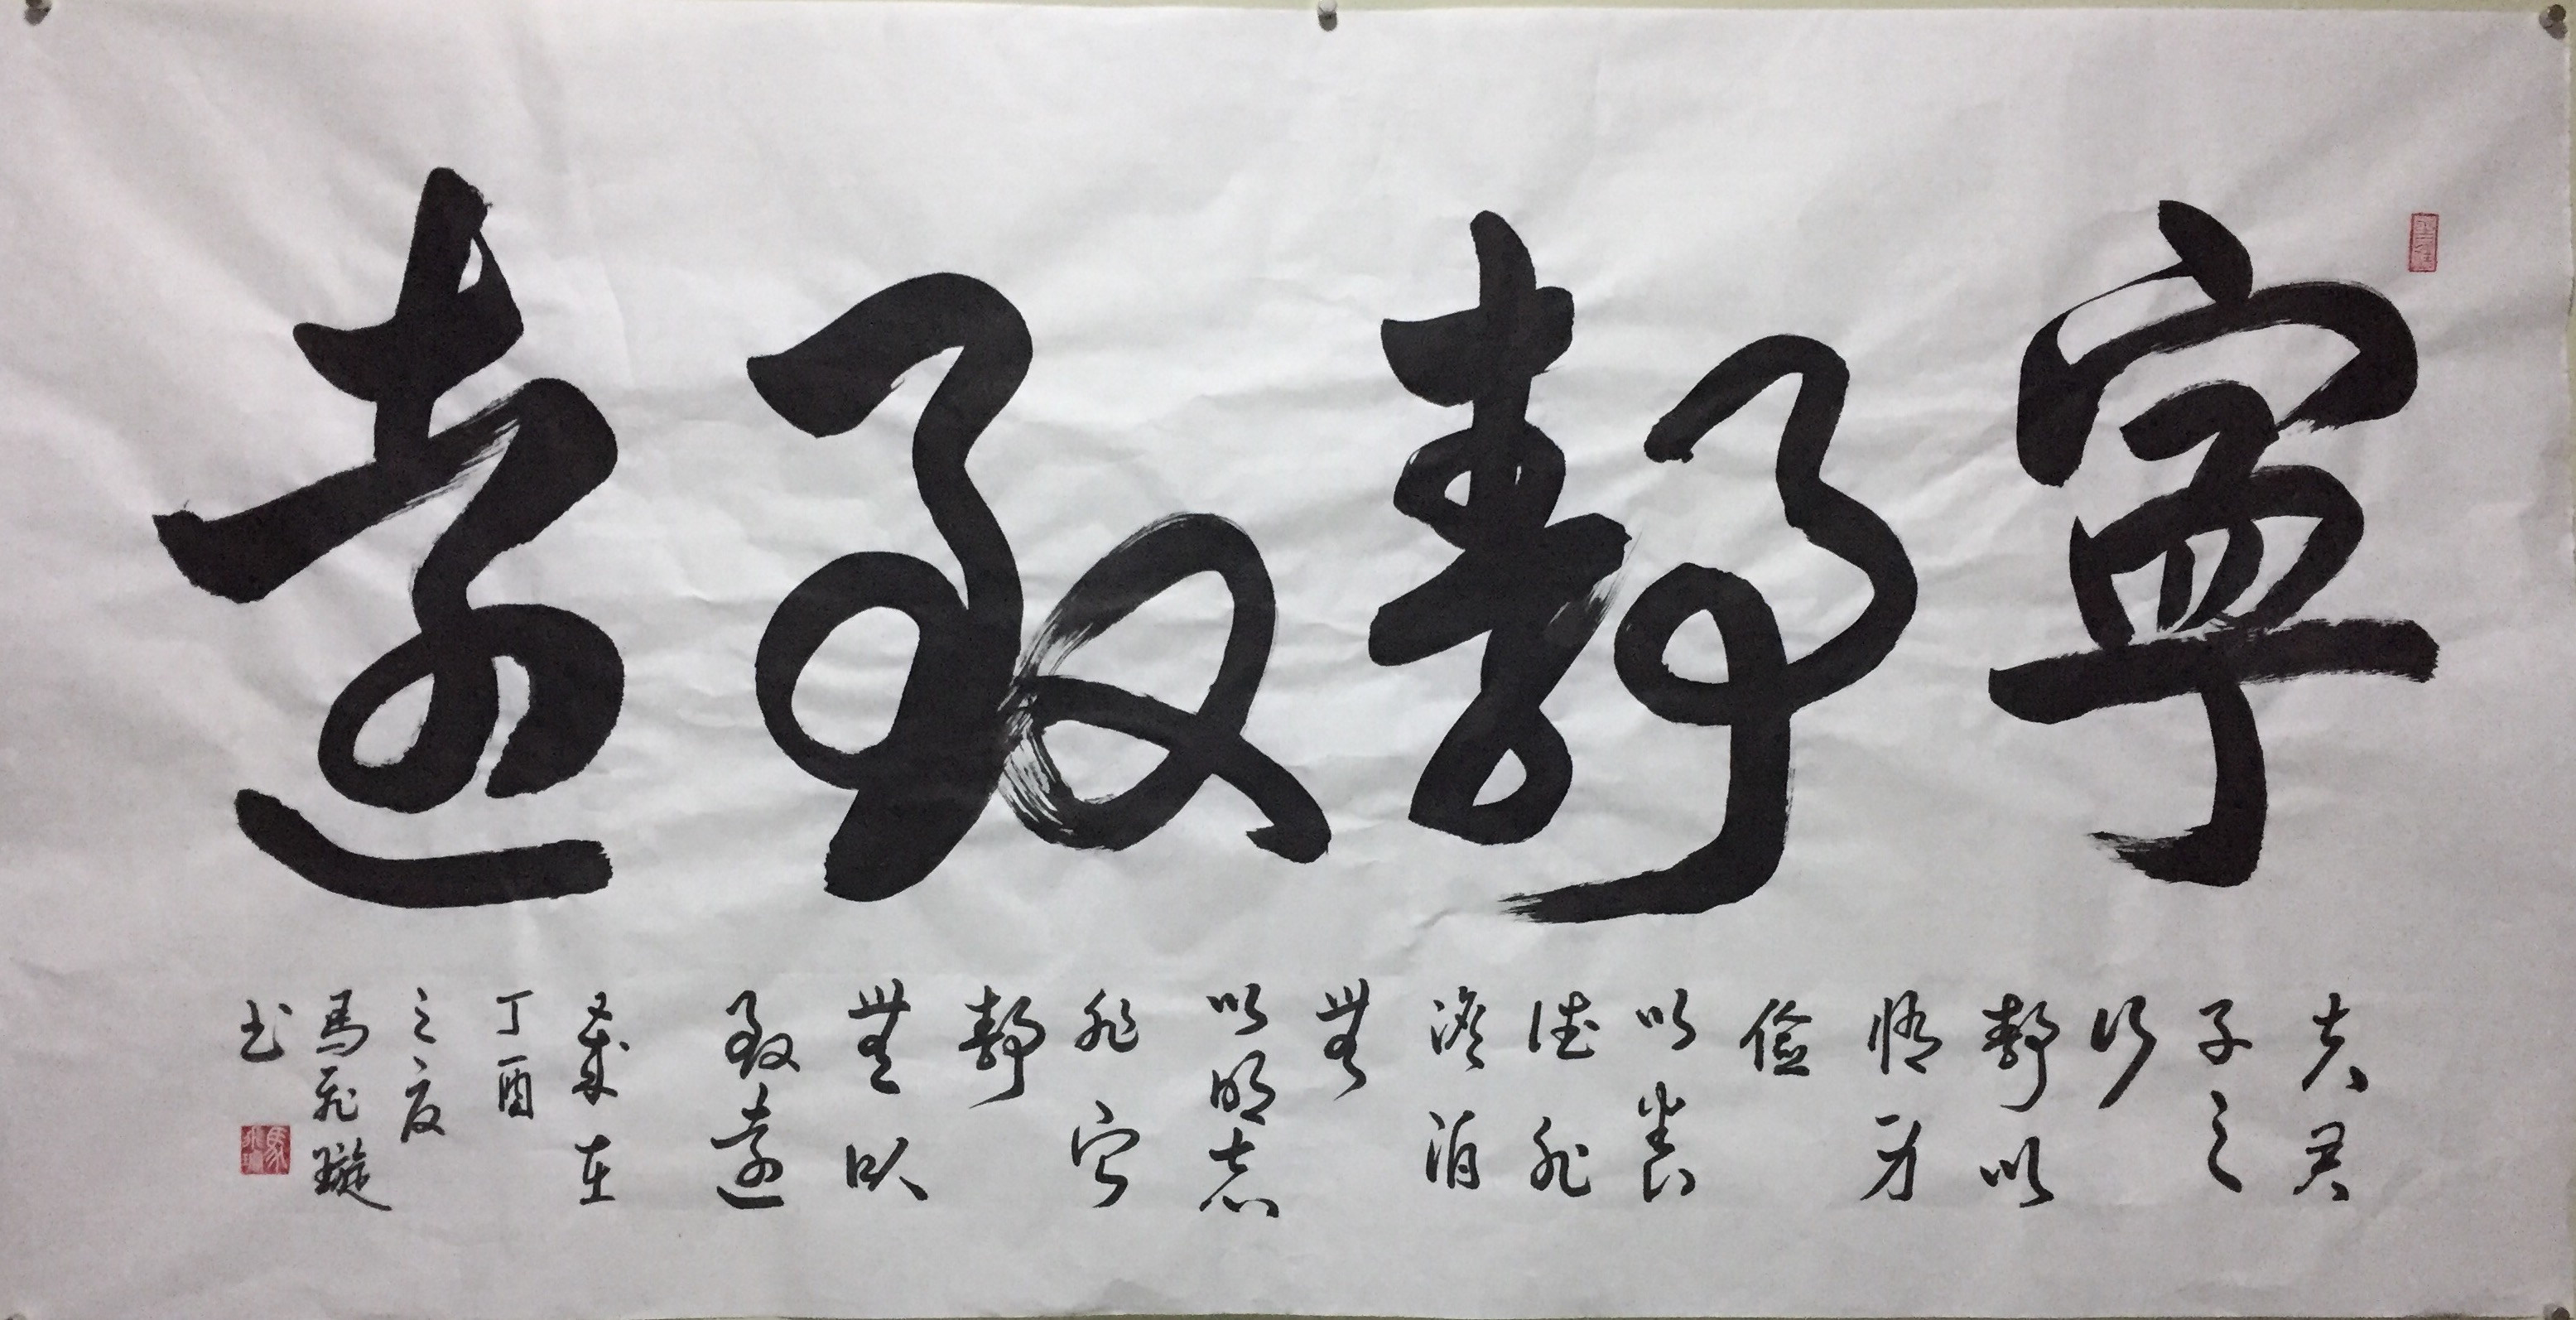 寧靜致遠
夫君
子之
行
靜以
脩身
儉
以養
德非
澹泊
無
以明志
非寧
靜
無以
致遠
歲在
丁酉
之夏
馬飛璇
書